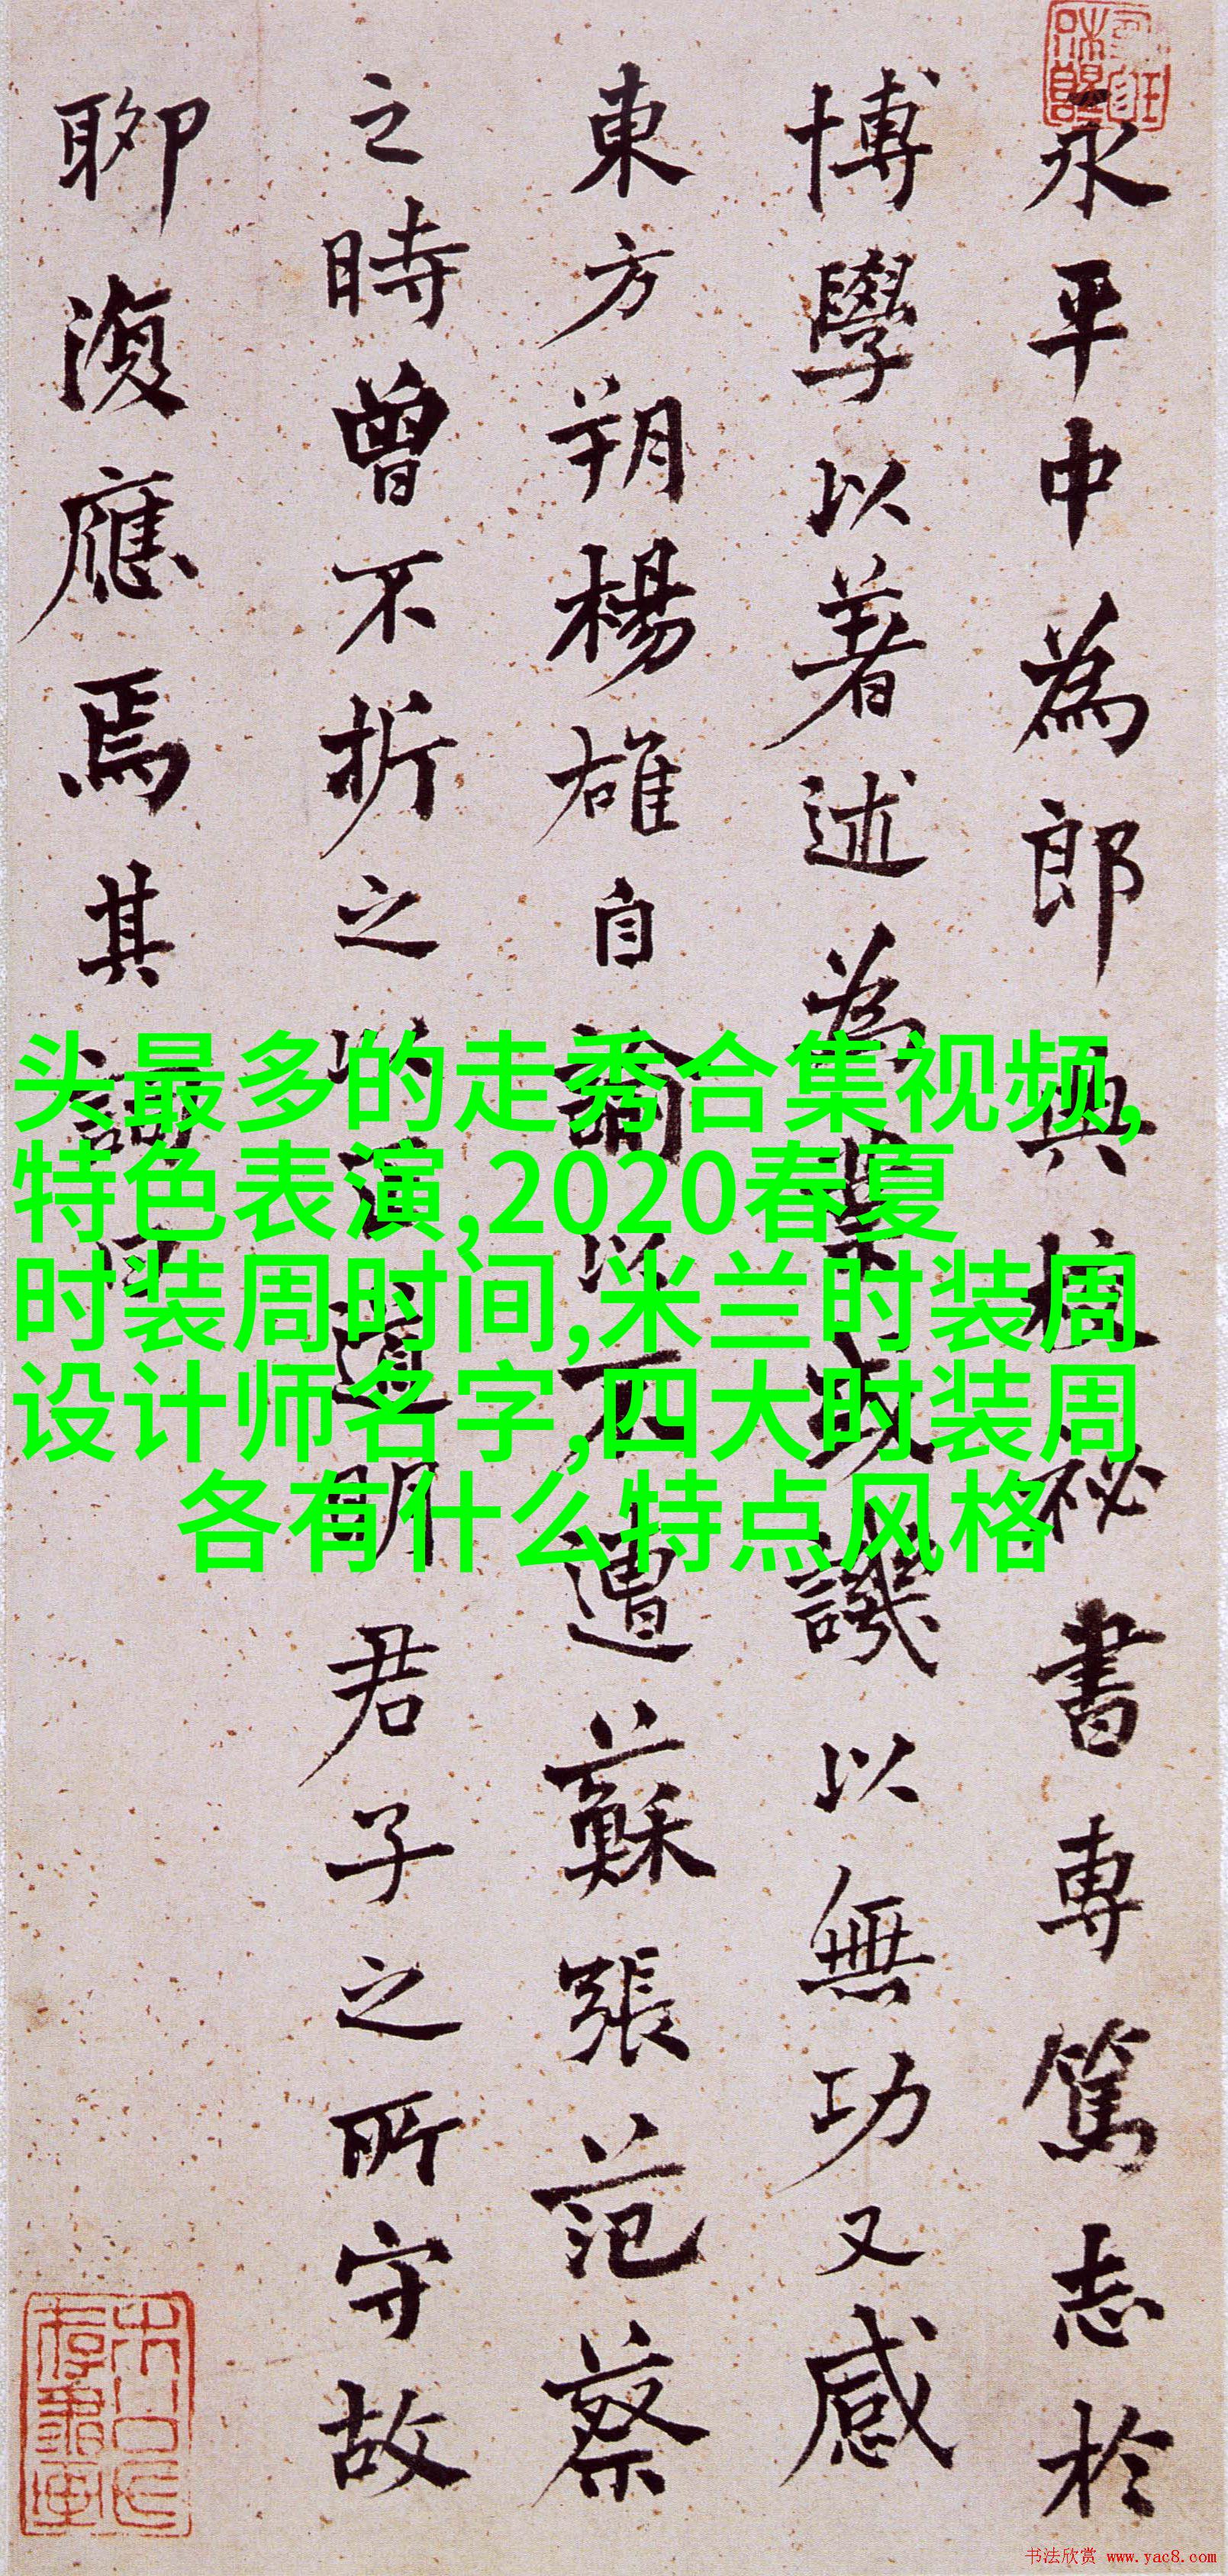 永平中為郎典校祕書専篤志於
博學以著述為業或譏以無功又感
東方朔楊雄自諭以不遭蘇張范蔡
之時曾不折之以正道明君子之所守故
聊復應焉其詞曰
头最多的走秀合集视频,
特色表演,2020春夏
时装周时间,米兰时装周
设计师名字,四大时装周
各有什么特点风格
书法欣赏 www.yac8.com